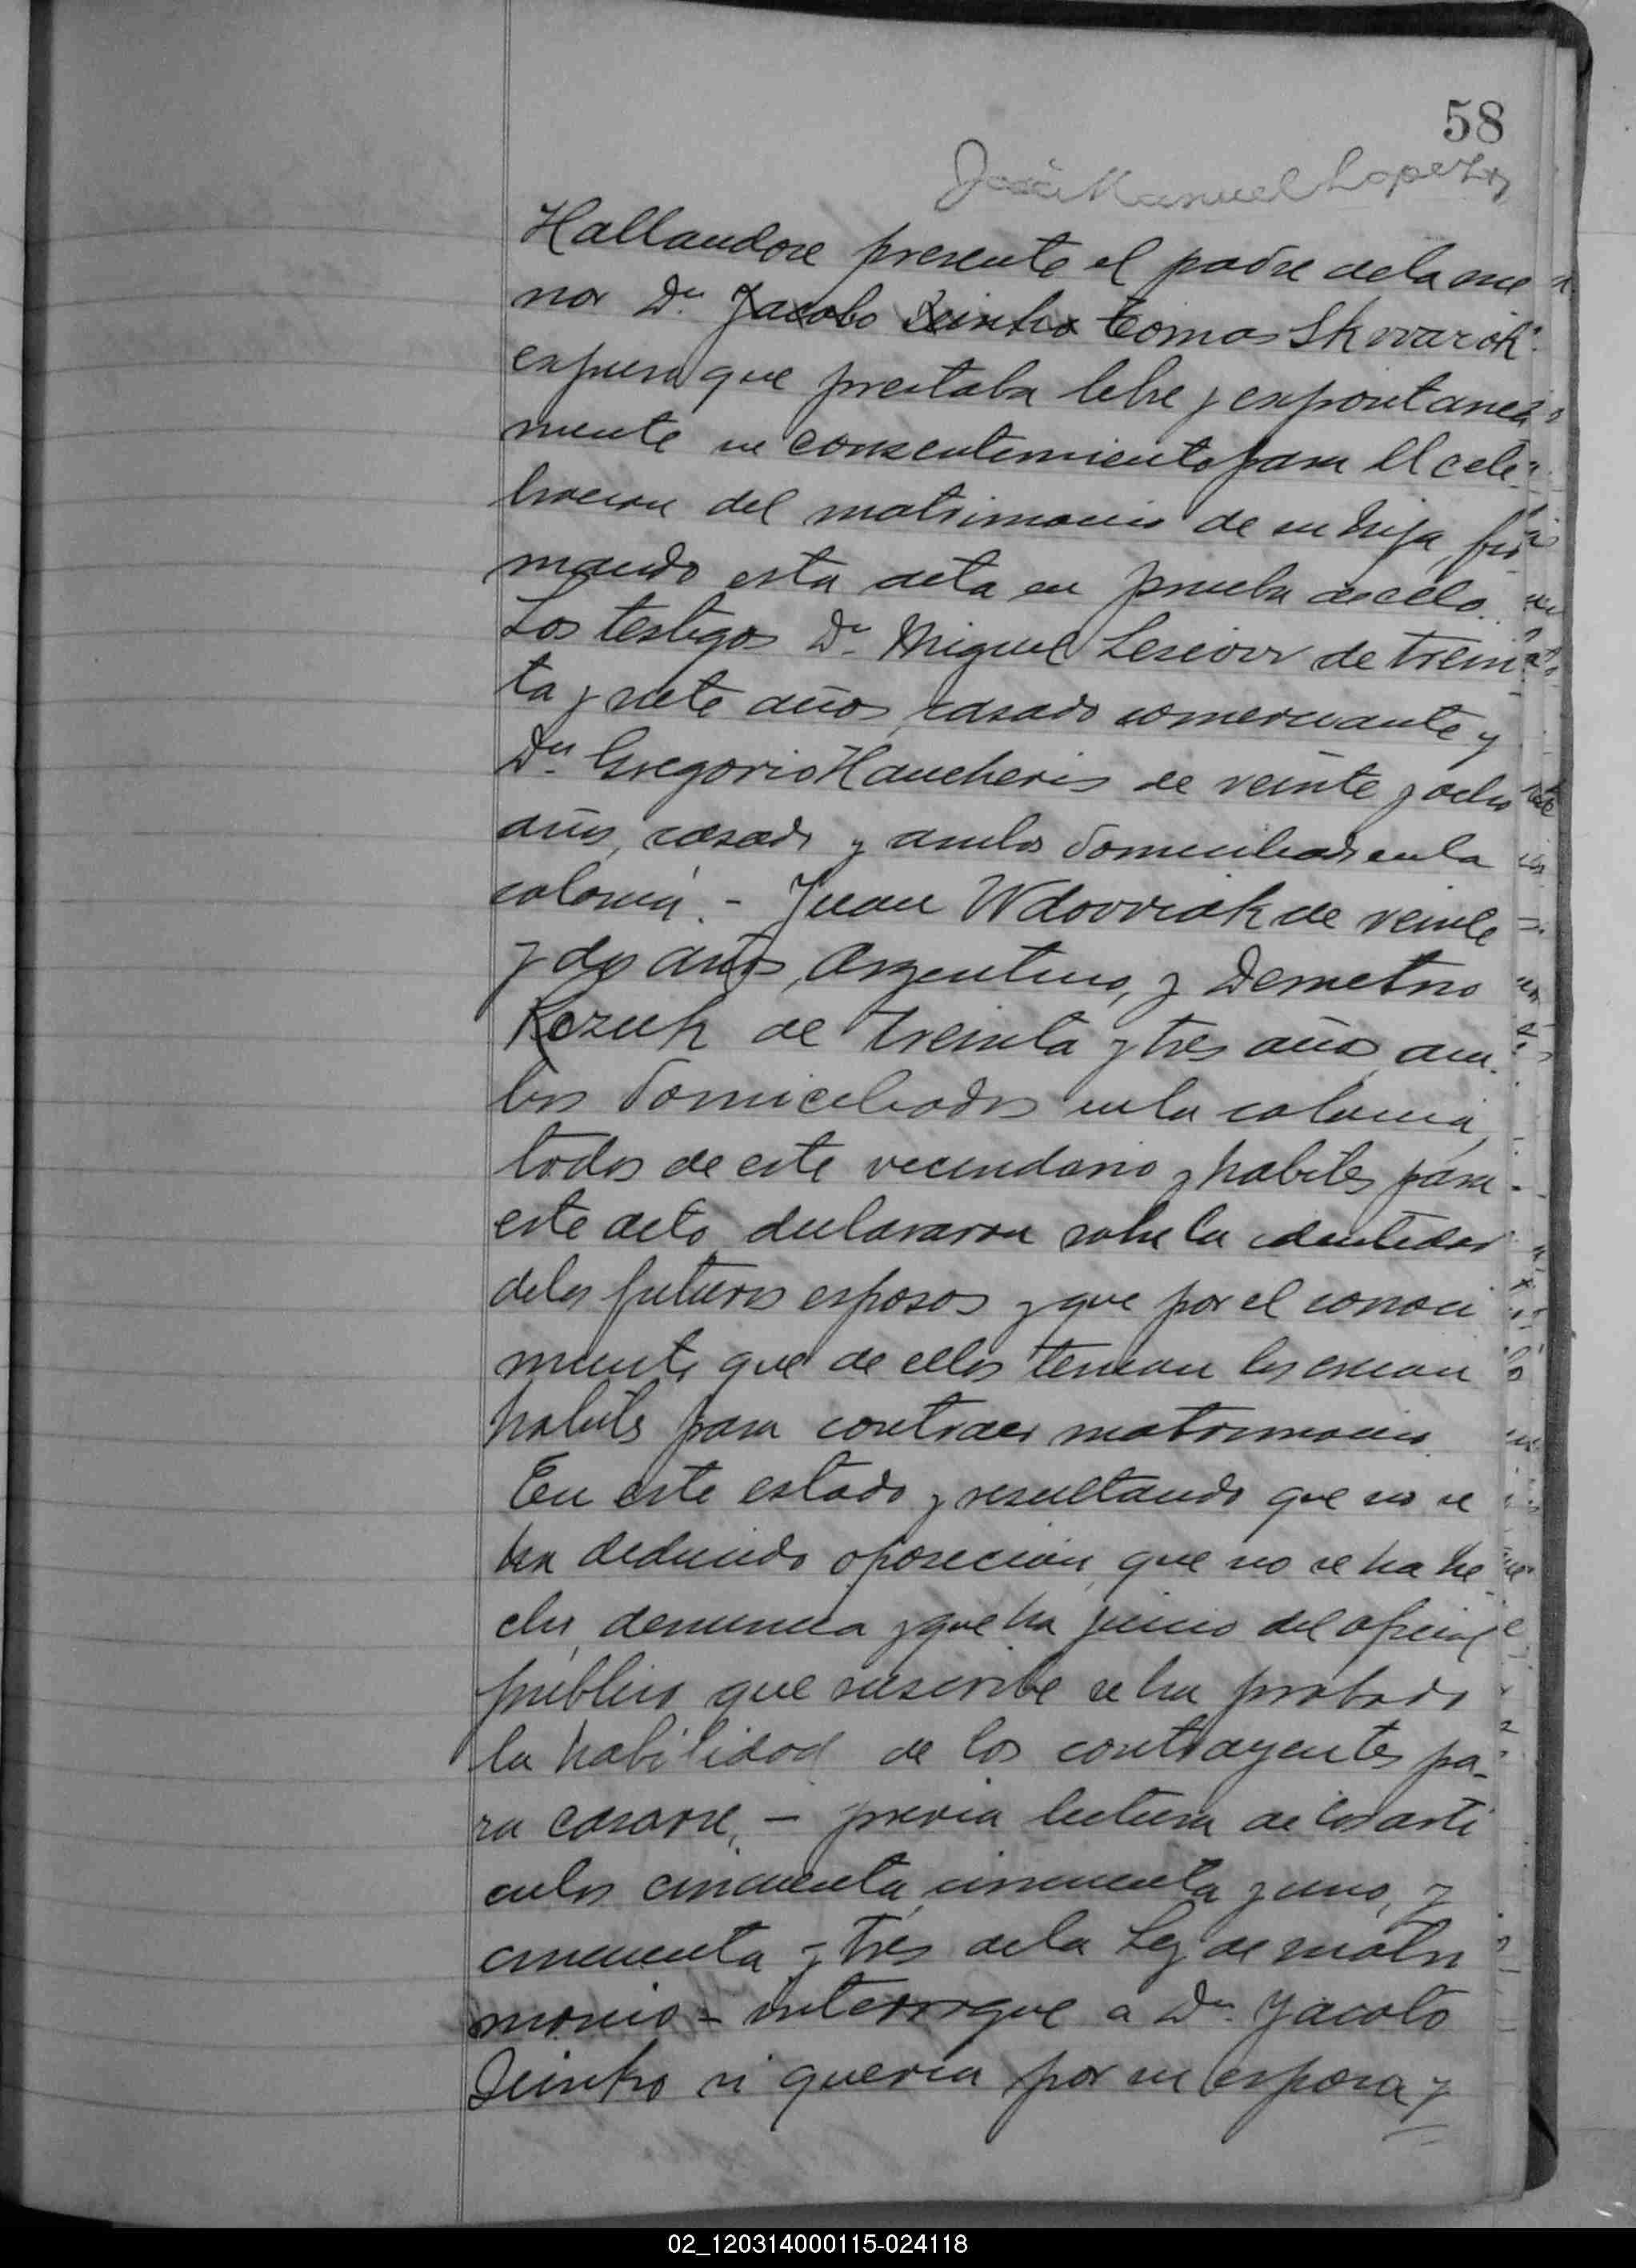 58
José Manuel Lopez
Hallandose presente el padre de la me
nor Dn. Jacobo Seinko Tomas Skwarok
expuso que prestaba libre y espontanea
mente su consentimiento para el cele
bracion del matrimonio de su hija, fir
mando esta acta en prueba de ello.
Los testigos Dn. Miguel de trein
ta y siete años, casado comerciante y
Dn. Gregorio Haucheris de veinte y ocho
años, casado y ambos domiciliados en la
colonia. - Juan Wdowiak de veinte
y dos años, Argentino, y Demetrio
Kozuk de treinta y tres años am
bos domiciliados en la colonia,
todos de este vecindario y habiles para
este acto declararon sobre la identidad
de los futuros esposos y que por el conoci
miento que de ellos tenian los creian
habiles para contraer matrimonio.
En este estado y resultando que no se
ha deducido oposicion, que no se ha he
cho denuncia y que ha juicio del oficial
publico que suscribe se ha probado
la habilidad de los contrayentes pa-
ra casarse, - previa lectura de los arti
culos cincuenta, cincuenta y uno, y
cincuenta y tres de la Ley de matri
monio - interrogue a Dn. Jacobo
Seinko si queria por su esposa y
02_120314000115-024118